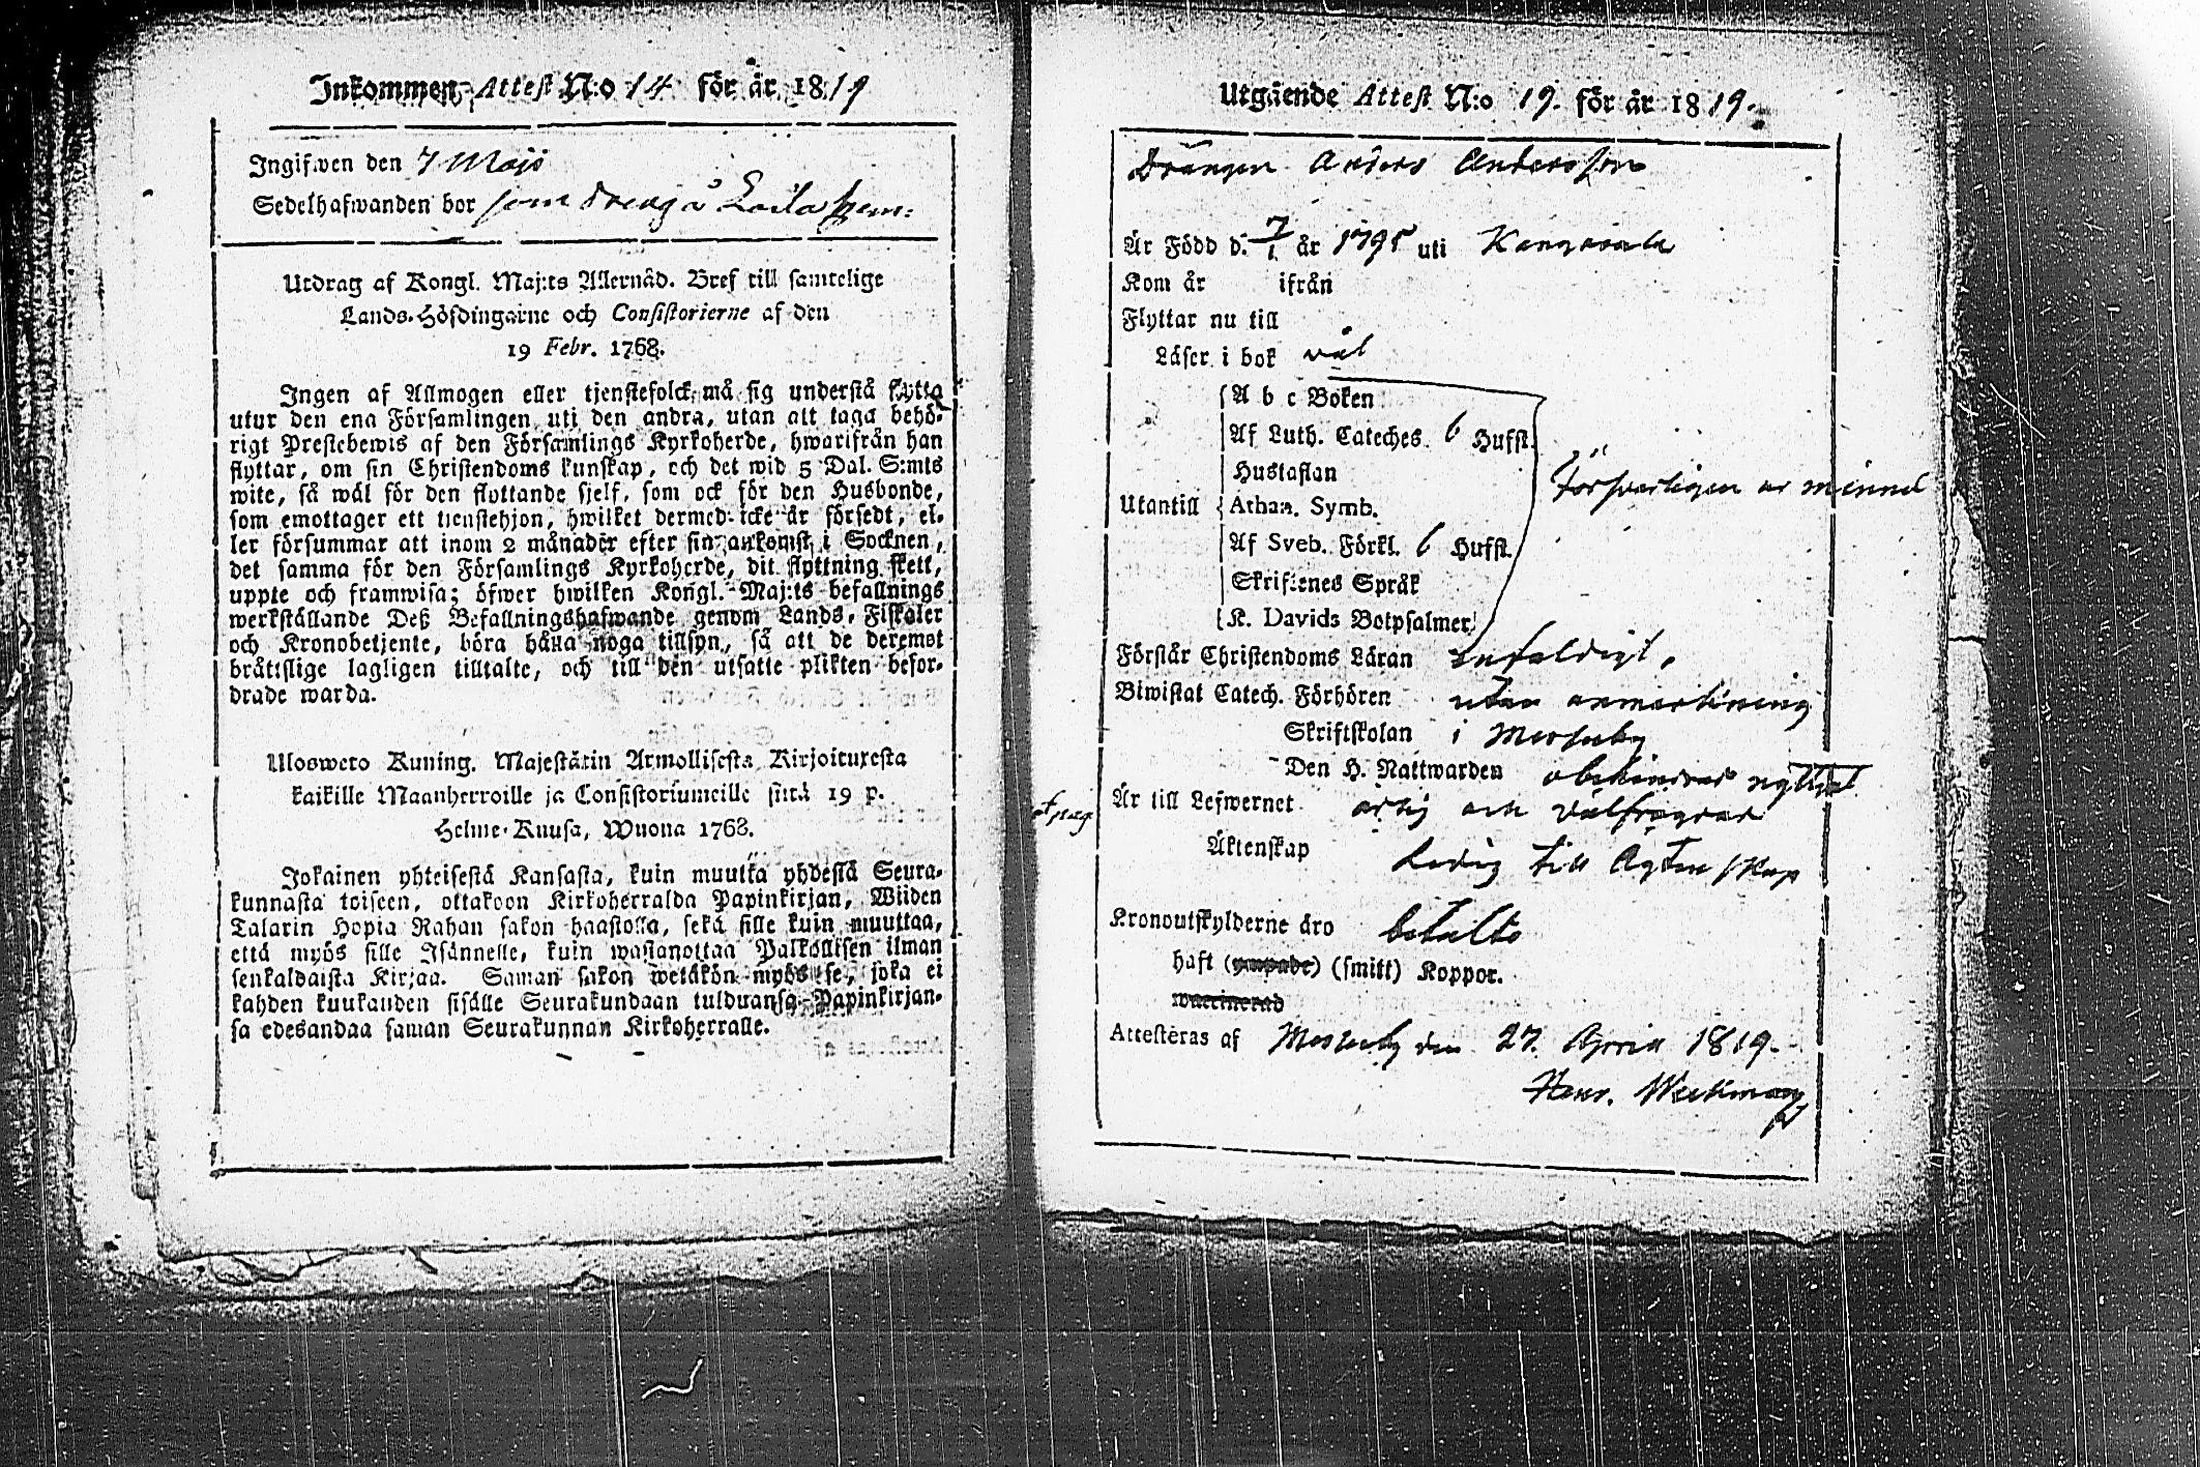 Inkommen Attest N:o 14 för år 1819
Ingifwen den 7 Maji
Sedelhafwanden bor som dreng å
Utdrag af Kongl. Maj:ts Allernåd. Bref till samtelige
Lands-Höfdingarne och Consistorierne af den
19 Febr. 1768.
Ingen af Allmogen eller tjenstefolck må sig understå flytta
utur den ena Församlingen uti den andra, utan att taga behö-
rigt Prestebewis af den Församlings Kyrkoherde, hwarifrån han
flyttar, om sin Christendoms kunskap, och det wid 5 Dal. S:mts
wite, så wäl för den flyttande sjelf, som ock för den Husbonde,
som emottager ett tienstehjon, hwilket dermed icke är försedt, el-
ler försummar att inom 2 månader efter sin ankomst i Socknen,
det samma för den Församlings Kyrkoherde, dit flyttning skett,
uppte och framwisa; öfwer hwilken Kongl. Maj:ts befallnings
werkställande Deß Befallningshafwande genom Lands-Fiskaler
och Kronobetjente, böra hålla noga tillsyn, så att de deremot
bråttslige lagligen tilltalte, och till den utsatte plikten befor-
drade warda.
Ulosweto Kuning. Majestätin Armollisesta Kirjoituxesta
kaikille Maanherroille ja Consistoriumeille siitä 19 p.
Helme-Kuusa, Wuona 1768.
Jokainen yhteisestä Kansasta, kuin muutta yhdestä Seura-
kunnasta toiseen, ottakoon Kirkoherralda Papinkirjan, Wiiden
Talarin Hopia Rahan sakon haastolla, sekä sille kuin muuttaa,
että myös sille Isännelle, kuin wastanottaa Palkollisen ilman
senkaldaista Kirjaa. Saman sakon wetäkön myös se, joka ei
kahden kuukauden sisälle Seurakundaan tulduansa Papinkirjan-
sa edesandaa saman Seurakunnan Kirkoherralle.
Utgående Attest N:o 19. för år 1819.
Drängen Anders Andersson
Är Född d. 7/1 år 1795 uti Kangasala
Kom år ifrån
Flyttar nu till
Läser i bok väl
A b c Boken
Af Luth. Cateches. 6 Hufst.
Hustaflan
Försvarligen ur minnet
Utantill Athan. Symb.
Af Sveb. Förkl. 6 Hufst.
Skriftenes Språk
K. Davids Botpsalmer
Förstår Christendoms Läran enfaldigt.
Biwistat Catech. Förhören utan anmärkning
Skriftskolan i Messuby
Den H. Nattwarden obehindrat nyttjat
Är till Lefwernet ärlig och välfrägdad
Äktenskap Ledig till Ägtenskap
Kronoutskylderne äro betalte
haft (ympade) (smitt) Koppor.
waccinerad
Attesteras af Messuby den 27. April 1819.
Henr. Weckman